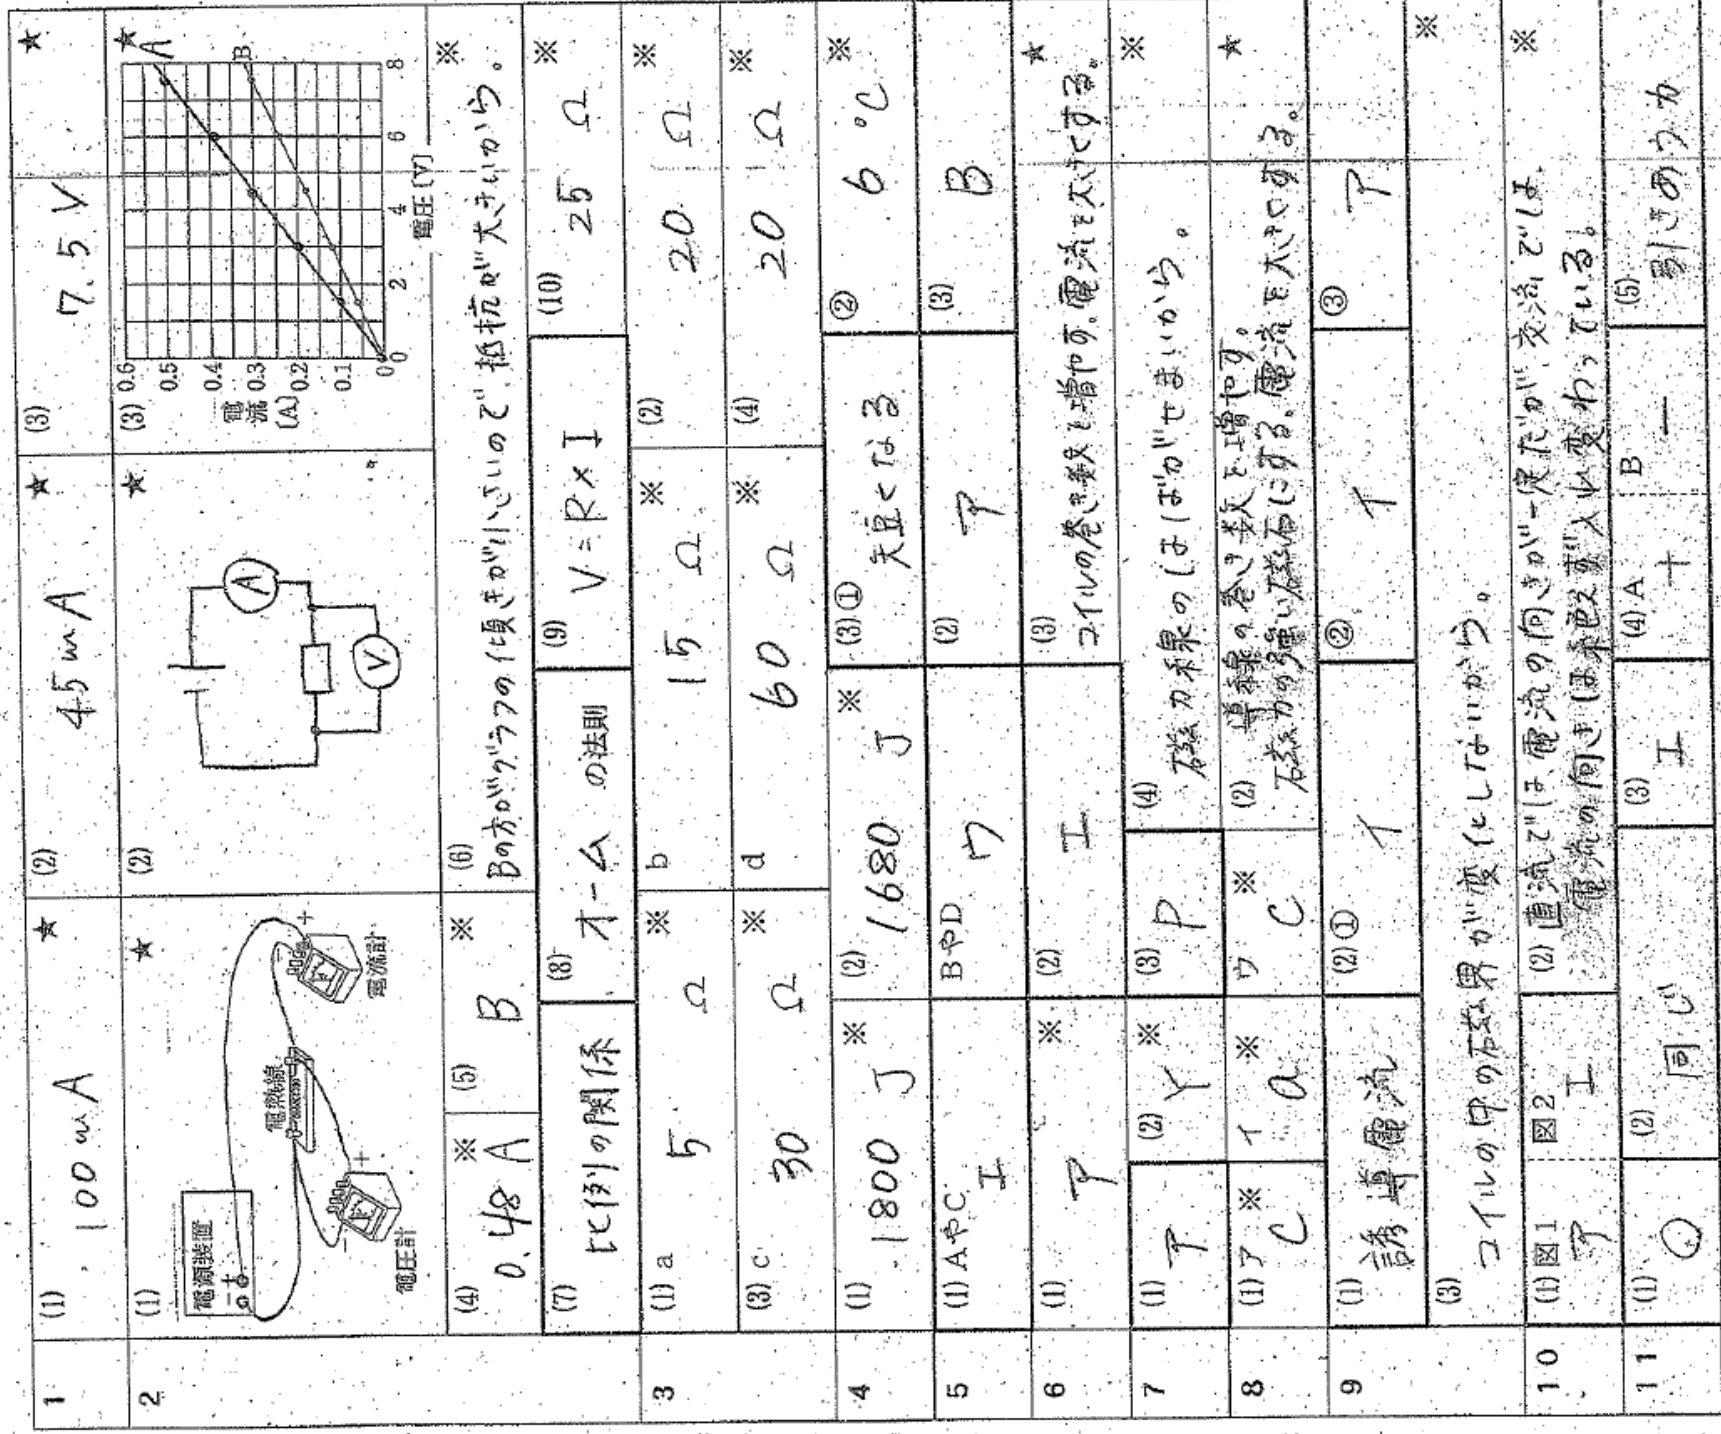 1
(1) 100mA ★
(2) 45mA ★
(3) 7.5V ★
2
(1) ★
電源装置
電熱線
電圧計
電流計
(2) ★
A
V
(3) ★
電流[A]
0.6
0.5
0.4
0.3
0.2
0.1
0
0 2 4 6 8
電圧[V]
A
B
(4) 0.48A ※
(5) B ※
(6) Bの方がグラフの傾きが小さいので抵抗が大きいから。 ※
(7) 比例の関係
(8) オームの法則
(9) V=R×I
(10) 25 Ω ※
3
(1) a 5 Ω ※
b 15 Ω ※
(2) 20 Ω ※
(3) c 30 Ω ※
d 60 Ω ※
(4) 20 Ω ※
4
(1) 1800 J ※
(2) 1680 J ※
(3)① 短くなる
② 6 ℃ ※
5
(1) AやC エ
BやD ウ
(2) ア
(3) B
6
(1) ア ※
(2) エ
(3) コイルの巻き数を増やす。電流を大きくする。 ★
7
(1) ア
(2) Y ※
(3) P
(4) 磁力線のはばがせまいから。 ※
8
(1) ア C ※
イ a ※
ウ C ※
(2) 導線の巻き数を増やす。 ★
磁力の強い磁石にする。電流を大きくする。
9
(1) 誘導電流
(2)① イ
② イ
③ ア
(3) コイルの中の磁界が変化しないから。 ※
10
(1) 図1 ア
図2 エ
(2) 直流では電流の向きが一定だが、交流では ※
電流の向きは入れ変わっている。
11
(1) ○
(2) 同じ
(3) エ
(4) A +
B −
(5) 引きあう力